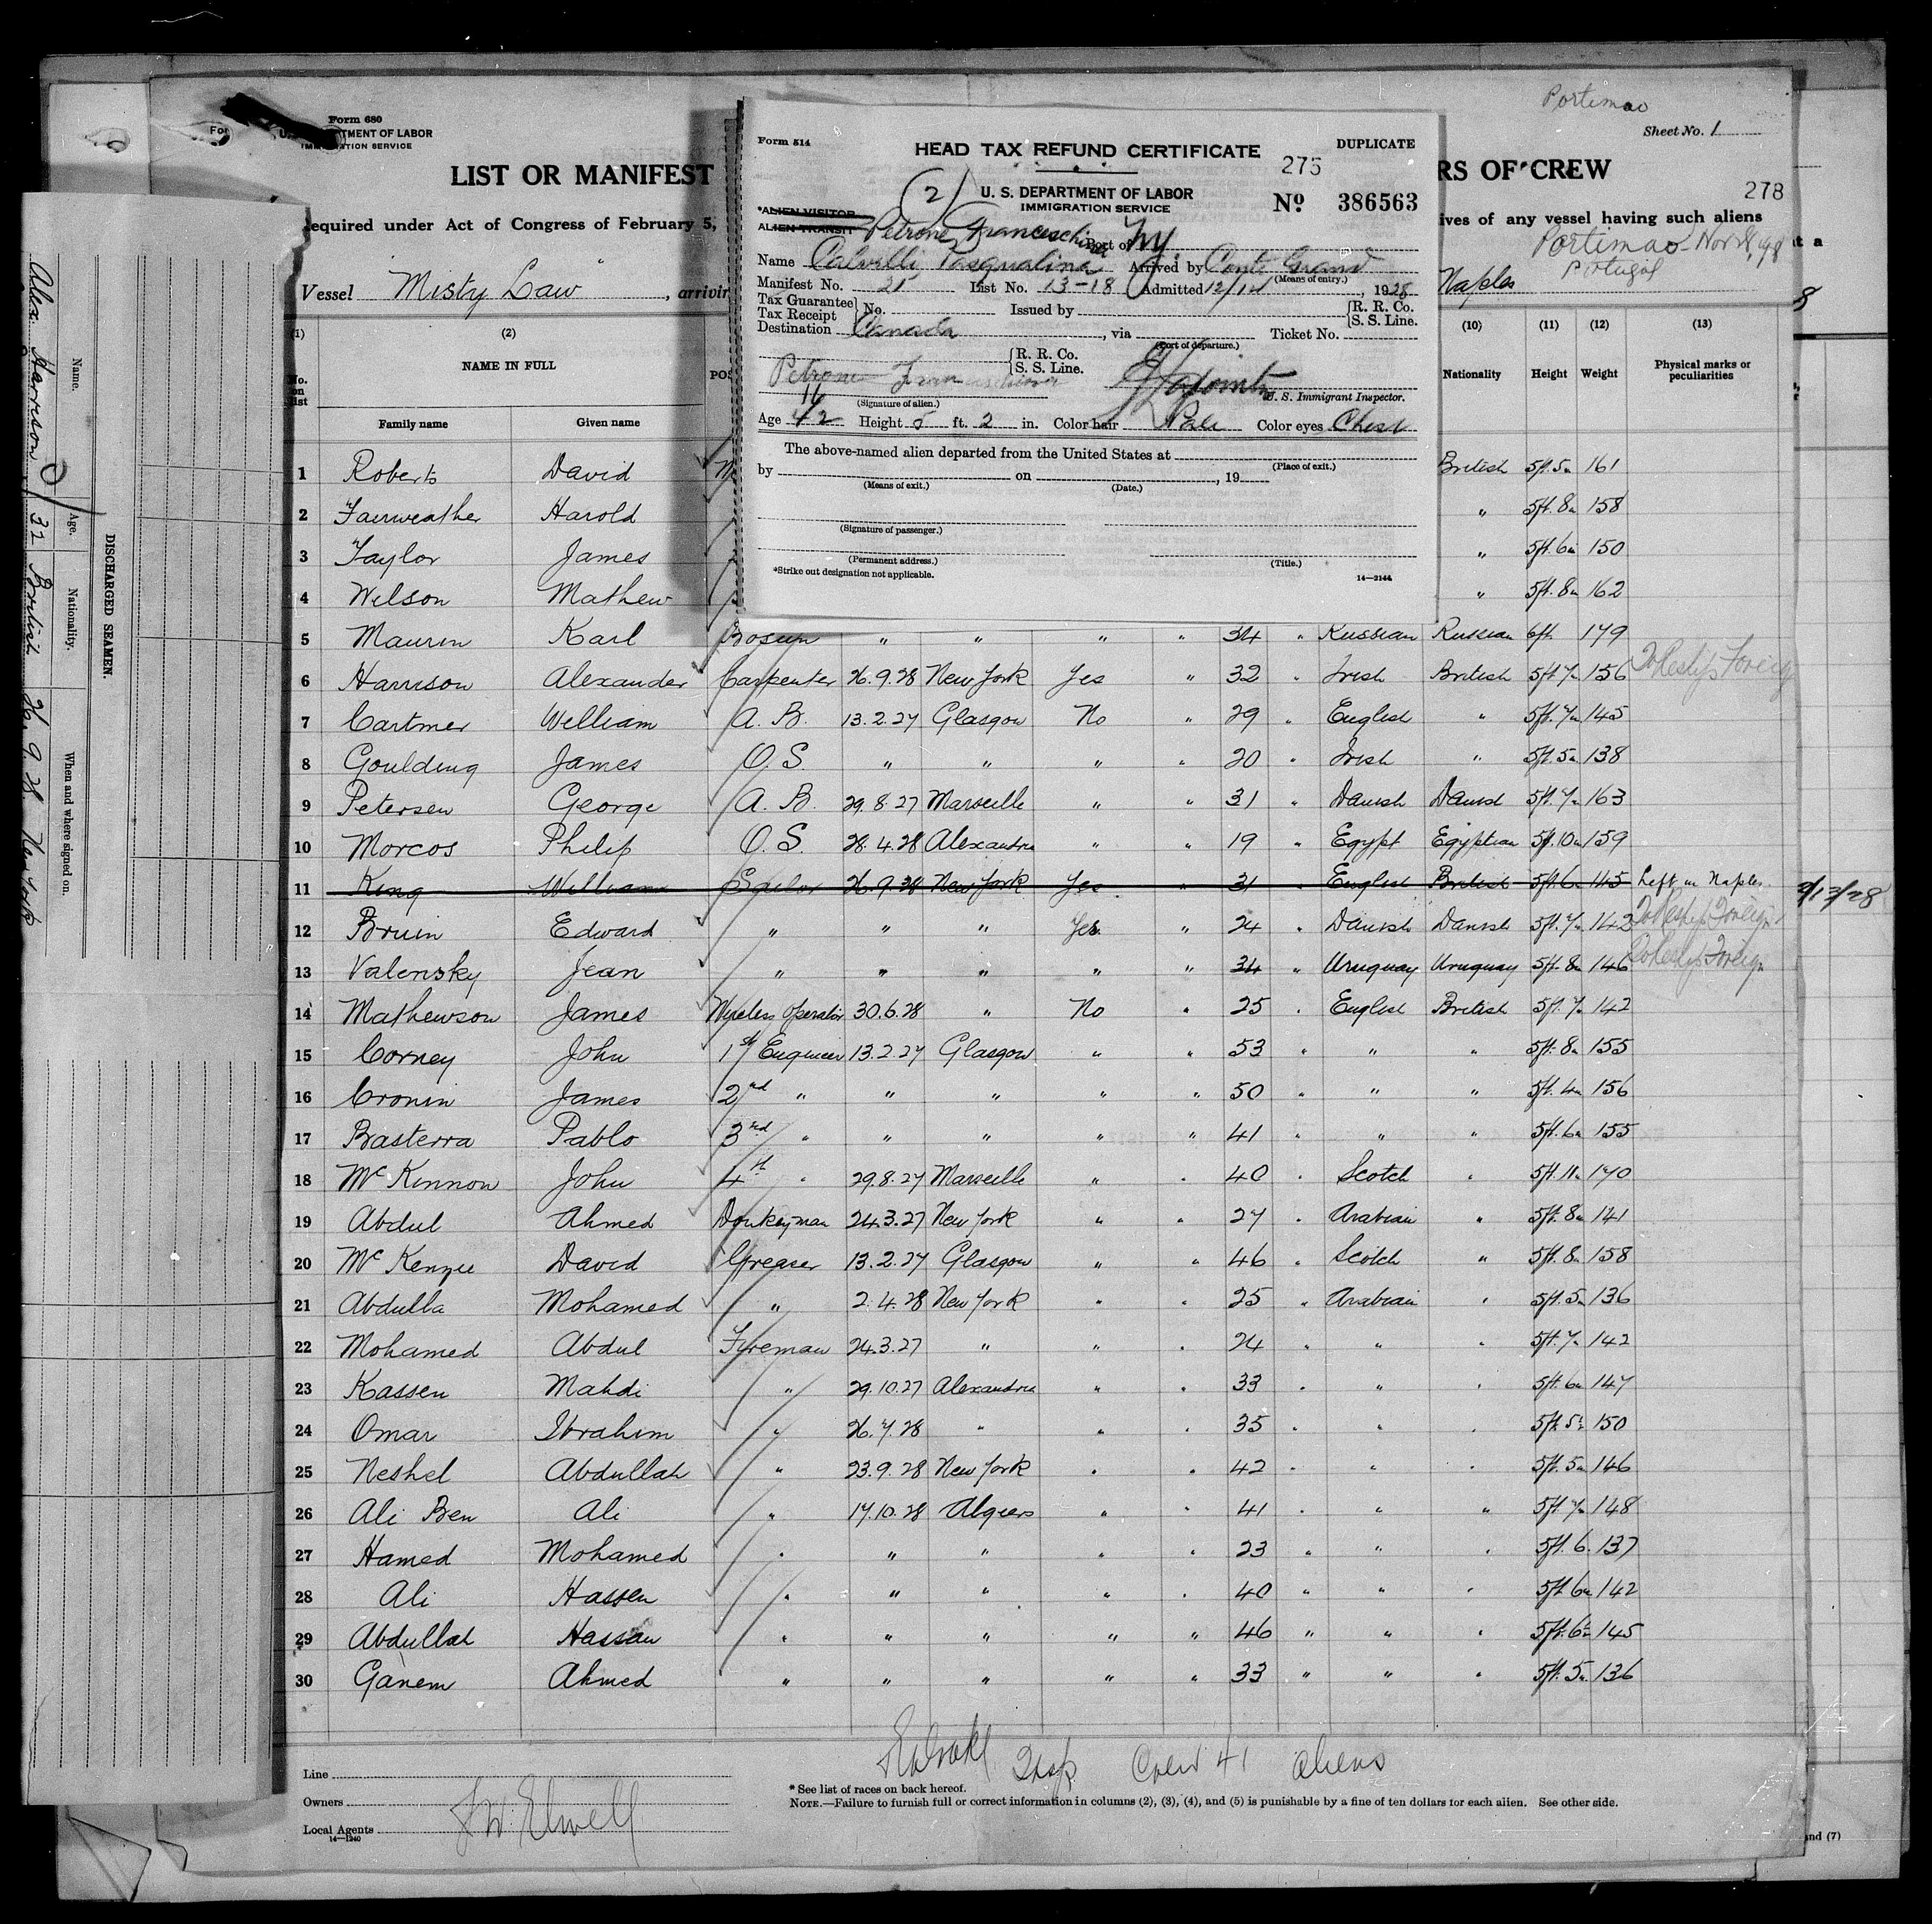 Portimao
Form 680
U. S. DEPARTMENT OF LABOR
IMMIGRATION SERVICE
Sheet No. 1
LIST OR MANIFEST
RS OF CREW
278
required under Act of Congress of February 5,
ives of any vessel having such aliens
Portimao Nov
Portugal
Vessel "Misty Law", arrivin
Naples
Form 514
HEAD TAX REFUND CERTIFICATE
DUPLICATE
275
(2) U. S. DEPARTMENT OF LABOR
IMMIGRATION SERVICE
No 386563
*ALIEN VISITOR
ALIEN TRANSIT
Petrone Port of NY.
Name Calvelli, Pasqualina Arrived by Conte Grand
(Means of entry.)
Manifest No. 21 List No. 13-18 Admitted 12/14, 1928
Tax Guarantee Tax Receipt No. Issued by R. R. Co. S. S. Line.
Destination Canada, via Ticket No.
(Port of departure.)
R. R. Co.
S. S. Line.
Petrone
(Signature of alien.)
U. S. Immigrant Inspector.
Age 42 Height 5 ft. 2 in. Color hair Color eyes Chest
The above-named alien departed from the United States at
(Place of exit.)
by on , 19
(Means of exit.) (Date.)
(Signature of passenger.)
(Permanent address.) (Title.)
*Strike out designation not applicable.
14—2144
(1) (2) (10) (11) (12) (13)
No. on list NAME IN FULL POS Nationality Height Weight Physical marks or peculiarities
Family name Given name
1 Roberts David M British 5ft.5in 161
2 Fairweather Harold " 5ft.8in 158
3 Taylor James " 5ft.6in 150
4 Wilson Mathew " 5ft.8in 162
5 Maurin Karl Bosun " " " " 34 " Russian Russian 6ft. 179
6 Harrison Alexander Carpenter 26.9.28 New York Yes " 32 " Irish British 5ft.7in 156 To Reship Foreign
7 Cartmer William A. B. 13.2.27 Glasgow No " 29 " English " 5ft.7in 145
8 Goulding James O. S " " " " 20 " Irish " 5ft.5in 138
9 Petersen George A. B. 29.8.27 Marseille " " 31 " Danish Danish 5ft.7in 163
10 Morcos Philip O. S. 28.4.28 Alexandria " " 19 " Egypt Egyptian 5ft.10in 159
11 King William Sailor 26.9.28 New York Yes " 31 " English British 5ft.6in 145 Left in Naples.
12 Bruin Edward " " " Yes. " 24 " Danish Danish 5ft.7in 143 To Reship Foreign
13 Valensky Jean " " " " " 34 " Uruguay Uruguay 5ft.8in 146 To Reship Foreign
14 Mathewson James Wireless Operator 30.6.28 " No " 25 " English British 5ft.7in 142
15 Corney John 1st Engineer 13.2.27 Glasgow " " 53 " " " 5ft.8in 155
16 Cronin James 2nd " " " " " 50 " " " 5ft.4in 156
17 Basterra Pablo 3rd " " " " " 41 " " " 5ft.6in 155
18 McKinnon John 4th " 29.8.27 Marseille " " 40 " Scotch " 5ft.11in 170
19 Abdul Ahmed Donkeyman 24.3.27 New York " " 27 " Arabian " 5ft.8in 141
20 McKenzie David Greaser 13.2.27 Glasgow " " 46 " Scotch " 5ft.8in 158
21 Abdulla Mohamed " 2.4.28 New York " " 25 " Arabian " 5ft.5in 136
22 Mohamed Abdul Fireman 24.3.27 " " " 24 " " " 5ft.7in 142
23 Kassen Mahdi " 29.10.27 Alexandria " " 33 " " " 5ft.6in 147
24 Omar Ibrahim " 26.7.28 " " " 35 " " " 5ft.5in 150
25 Neshel Abdullah " 23.9.28 New York " " 42 " " " 5ft.5in 146
26 Ali Ben Ali " 17.10.28 Algiers " " 41 " " " 5ft.7in 148
27 Hamed Mohamed " " " " " 23 " " " 5ft.6. 137
28 Ali Hassen " " " " " 40 " " " 5ft.6in 142
29 Abdullah Hassan " " " " " 46 " " " 5ft.6in 145
30 Ganem Ahmed " " " " " 33 " " " 5ft.5in 136
Insp Crew 41 aliens
Line
Owners
Local Agents
F W. Elwell
14—1240
* See list of races on back hereof.
NOTE.—Failure to furnish full or correct information in columns (2), (3), (4), and (5) is punishable by a fine of ten dollars for each alien. See other side.
and (7)
DISCHARGED SEAMEN.
Name. Age. Nationality. When and where signed on.
Alex. Harrison 32 British 26.9.28. New York